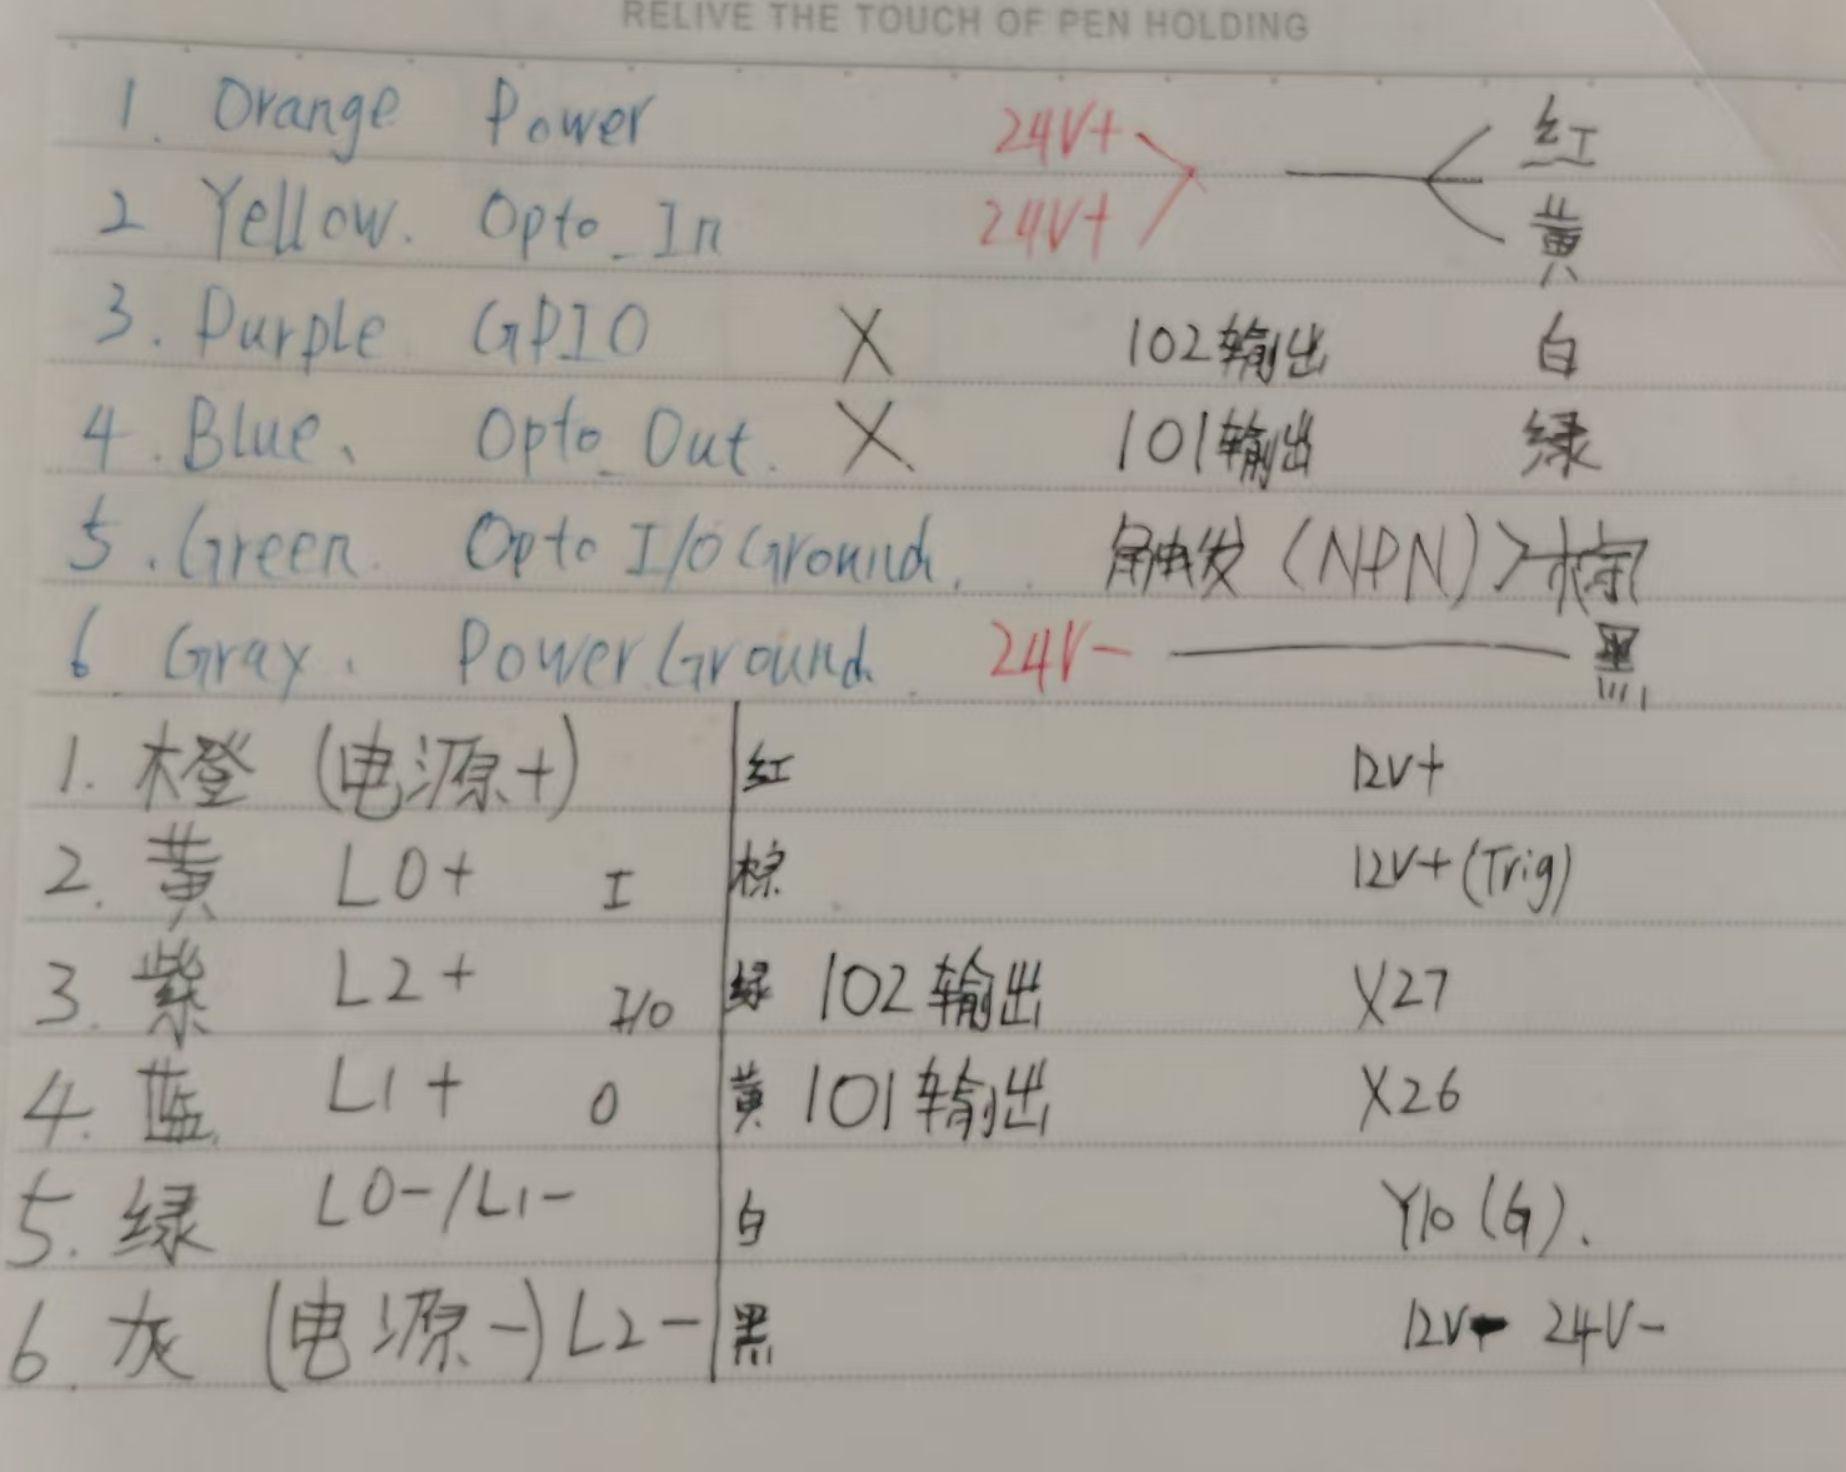 RELIVE THE TOUCH OF PEN HOLDING
1. Orange Power 24V+ 红
2 Yellow. Opto_In 24V+ 黄
3. Purple GPIO X 102输出 白
4. Blue、 Opto_Out. X 101输出 绿
5. Green. Opto I/O Ground. 触发 (NPN) > 棕
6 Gray. Power Ground. 24V- 黑
1. 橙 (电源+) 红 12V+
2. 黄 L0+ I 棕 12V+(Trig)
3. 紫 L2+ I/O 绿 102输出 X27
4. 蓝 L1+ O 黄 101输出 X26
5. 绿 L0-/L1- 白 Y10 (G).
6. 灰 (电源-) L2- 黑 12V- 24V-